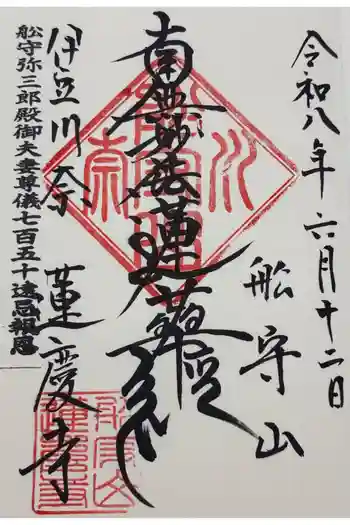 令和八年六月十二日
船守山
南無妙法蓮華経
伊豆川奈
蓮慶寺
舩守弥三郎殿御夫妻尊儀七百五十遠忌報恩